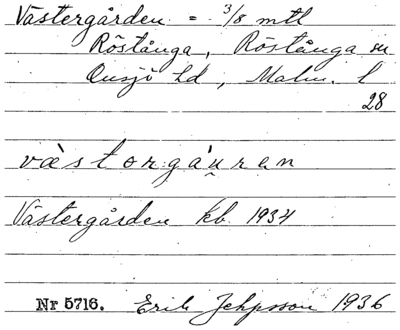 Västergården = 3/8 mtl
Röstånga, Röstånga sn
Onsjö hd, Malm. l
28
vàstorgáu̯ran
Västergården kb. 1934
Nr 5716. Erik Jehpsson 1936